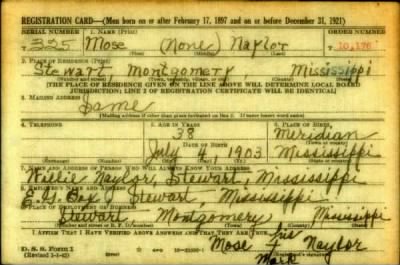 REGISTRATION CARD—(Men born on or after February 17, 1897 and on or before December 31, 1921)
SERIAL NUMBER 1. NAME (Print) ORDER NUMBER
325 Mose (None) Naylor 10,176
(First) (Middle) (Last)
2. PLACE OF RESIDENCE (Print)
Stewart Montgomery Mississippi
(Number and street) (Town, township, village, or city) (County) (State)
[THE PLACE OF RESIDENCE GIVEN ON THE LINE ABOVE WILL DETERMINE LOCAL BOARD
JURISDICTION; LINE 2 OF REGISTRATION CERTIFICATE WILL BE IDENTICAL]
3. MAILING ADDRESS
Same
[Mailing address if other than place indicated on line 2. If same insert word same]
4. TELEPHONE 5. AGE IN YEARS 6. PLACE OF BIRTH
38 Meridian
DATE OF BIRTH (Town or county)
July 1903 Mississippi
(Exchange) (Number) (Mo.) (Day) (Yr.) (State or country)
7. NAME AND ADDRESS OF PERSON WHO WILL ALWAYS KNOW YOUR ADDRESS
Willie Naylor, Stewart, Mississippi
8. EMPLOYER'S NAME AND ADDRESS
Stewart, Mississippi
9. PLACE OF EMPLOYMENT OR BUSINESS
Stewart, Montgomery Mississippi
(Number and street or R. F. D. number) (Town) (County) (State)
I AFFIRM THAT I HAVE VERIFIED ABOVE ANSWERS AND THAT THEY ARE TRUE.
his
D. S. S. Form 1 Mose Naylor
(Revised 1-1-42) Mark